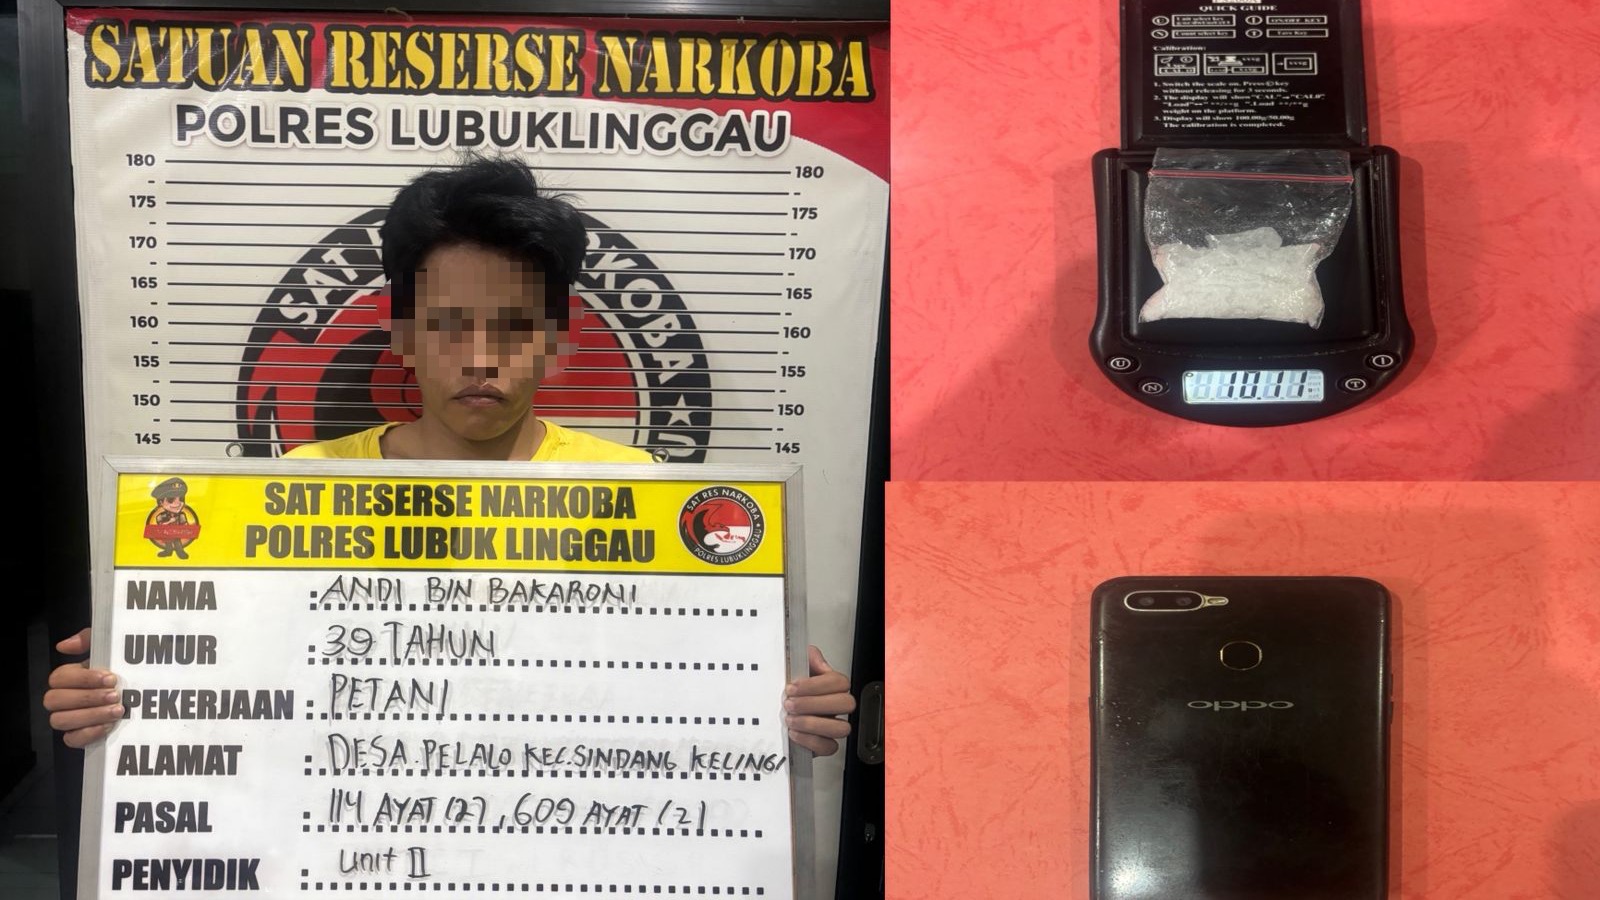 SATUAN RESERSE NARKOBA
POLRES LUBUKLINGGAU
180 180
175 175
170 170
165 165
160 160
155 155
150 150
145 145
SAT RESERSE NARKOBA
POLRES LUBUK LINGGAU
SAT RES NARKOBA
POLRES LUBUKLINGGAU
NAMA : ANDI BIN BAKARONI
UMUR : 39 TAHUN
PEKERJAAN : PETANI
ALAMAT : DESA PELALO KEC.SINDANG KELINGI
PASAL : 114 AYAT (2), 609 AYAT (2)
PENYIDIK : unit II
QUICK GUIDE
U Unit select key
I ON/OFF KEY
N Count select key
T Tare Key
Calibration:
1. Switch the scale on. Press key
without releasing for 3 seconds.
2. The display will show "CAL" "CAL0"
weight on the platform.
3. Display will show 100.00g/50.00g
The calibration is completed.
U
I
N
T
10.11
oppo